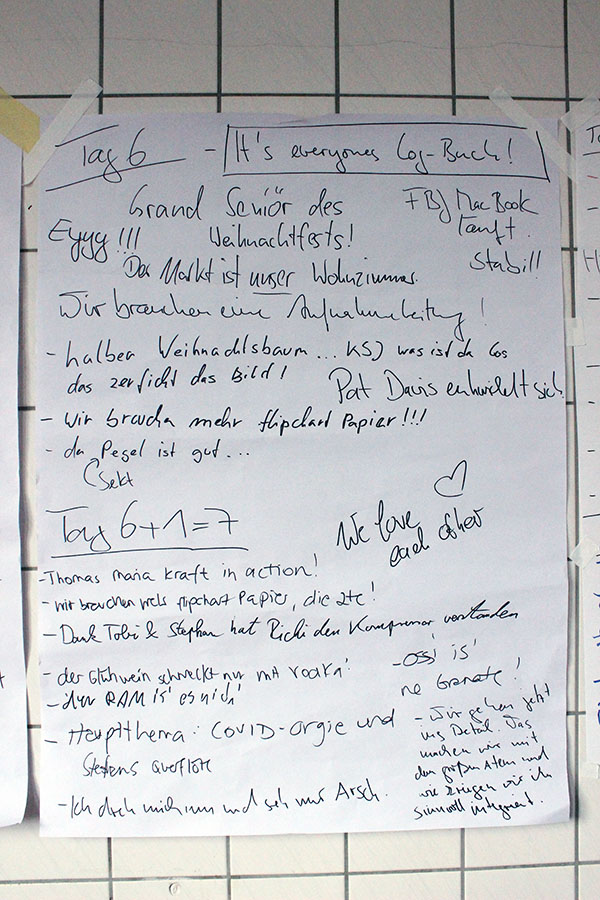 Tag 6 - It's everyones Log-Buch!
Grand Seniör des
Weihnachtfests!
FBJ MacBook
läuft.
Stabil!
Eyyy!!!
Der Markt ist unser Wohnzimmer.
Wir brauchen eine Aufnahmeleitung!
- halber Weihnachtsbaum... KSJ was ist da los
das zerfickt das Bild!
Pat Davis entwickelt sich
- wir braucha mehr flipchart Papier!!!
- da Pegel ist gut...
Sekt
We love
each other
Tag 6+1=7
- Thomas Maria Kraft in action!
- wir brauchen mehr flipchart Papier, die 2te!
- Dank Tobi & Stephan hat Richi den Kompressor verstanden
- der Glühwein schmeckt nur mit
- der RAM is' es nich'
- Hauptthema: COVID-Orgie und
Steffens Querflöte
- Ich dreh mich um und seh nur Arsch.
- Ossi is'
ne Granate!
- Wir gehen jetzt
ins Detail. Das
machen wir mit
dem großen Atem und
wie kriegen wir ihn
sinnvoll integriert.